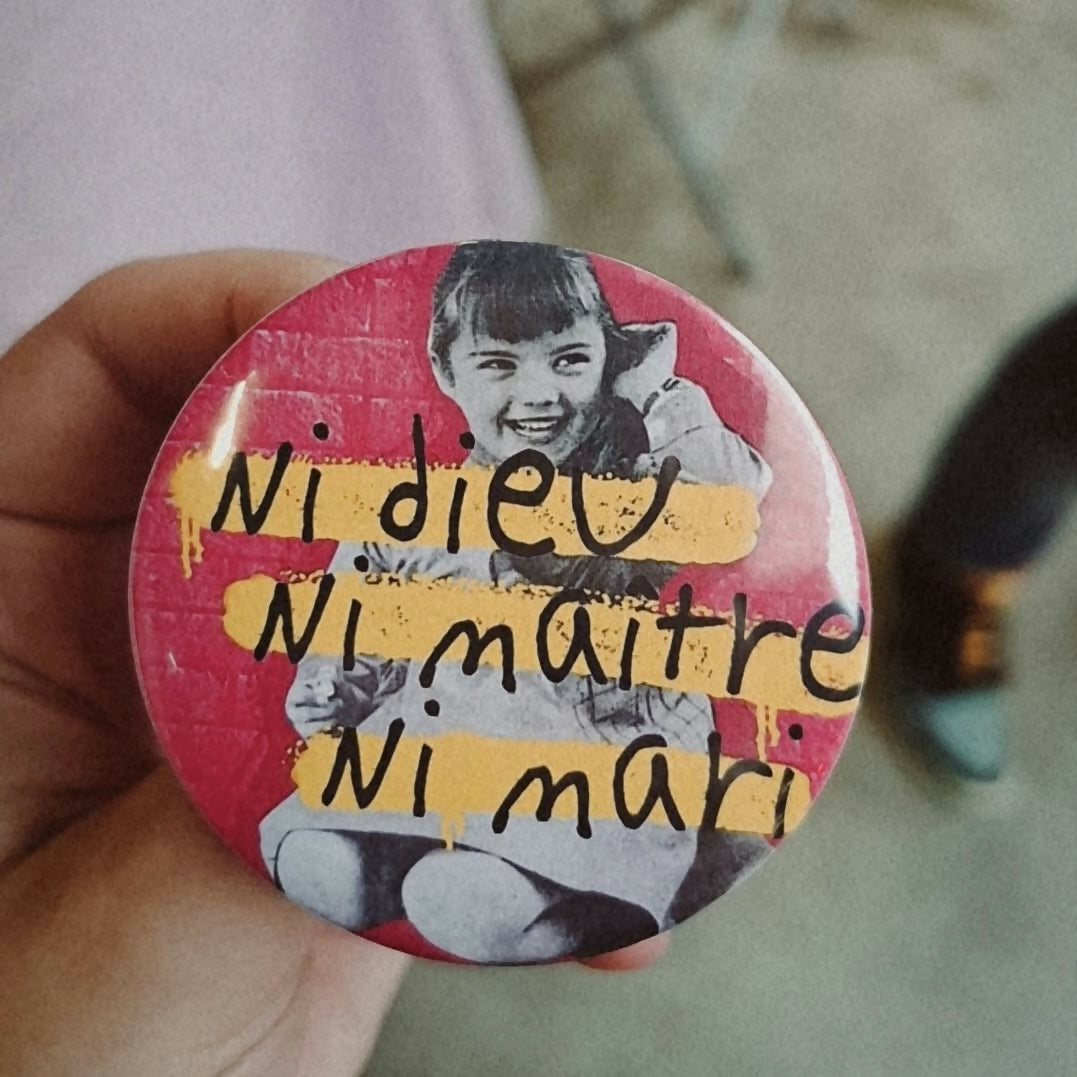 Ni dieu
Ni maître
Ni mari